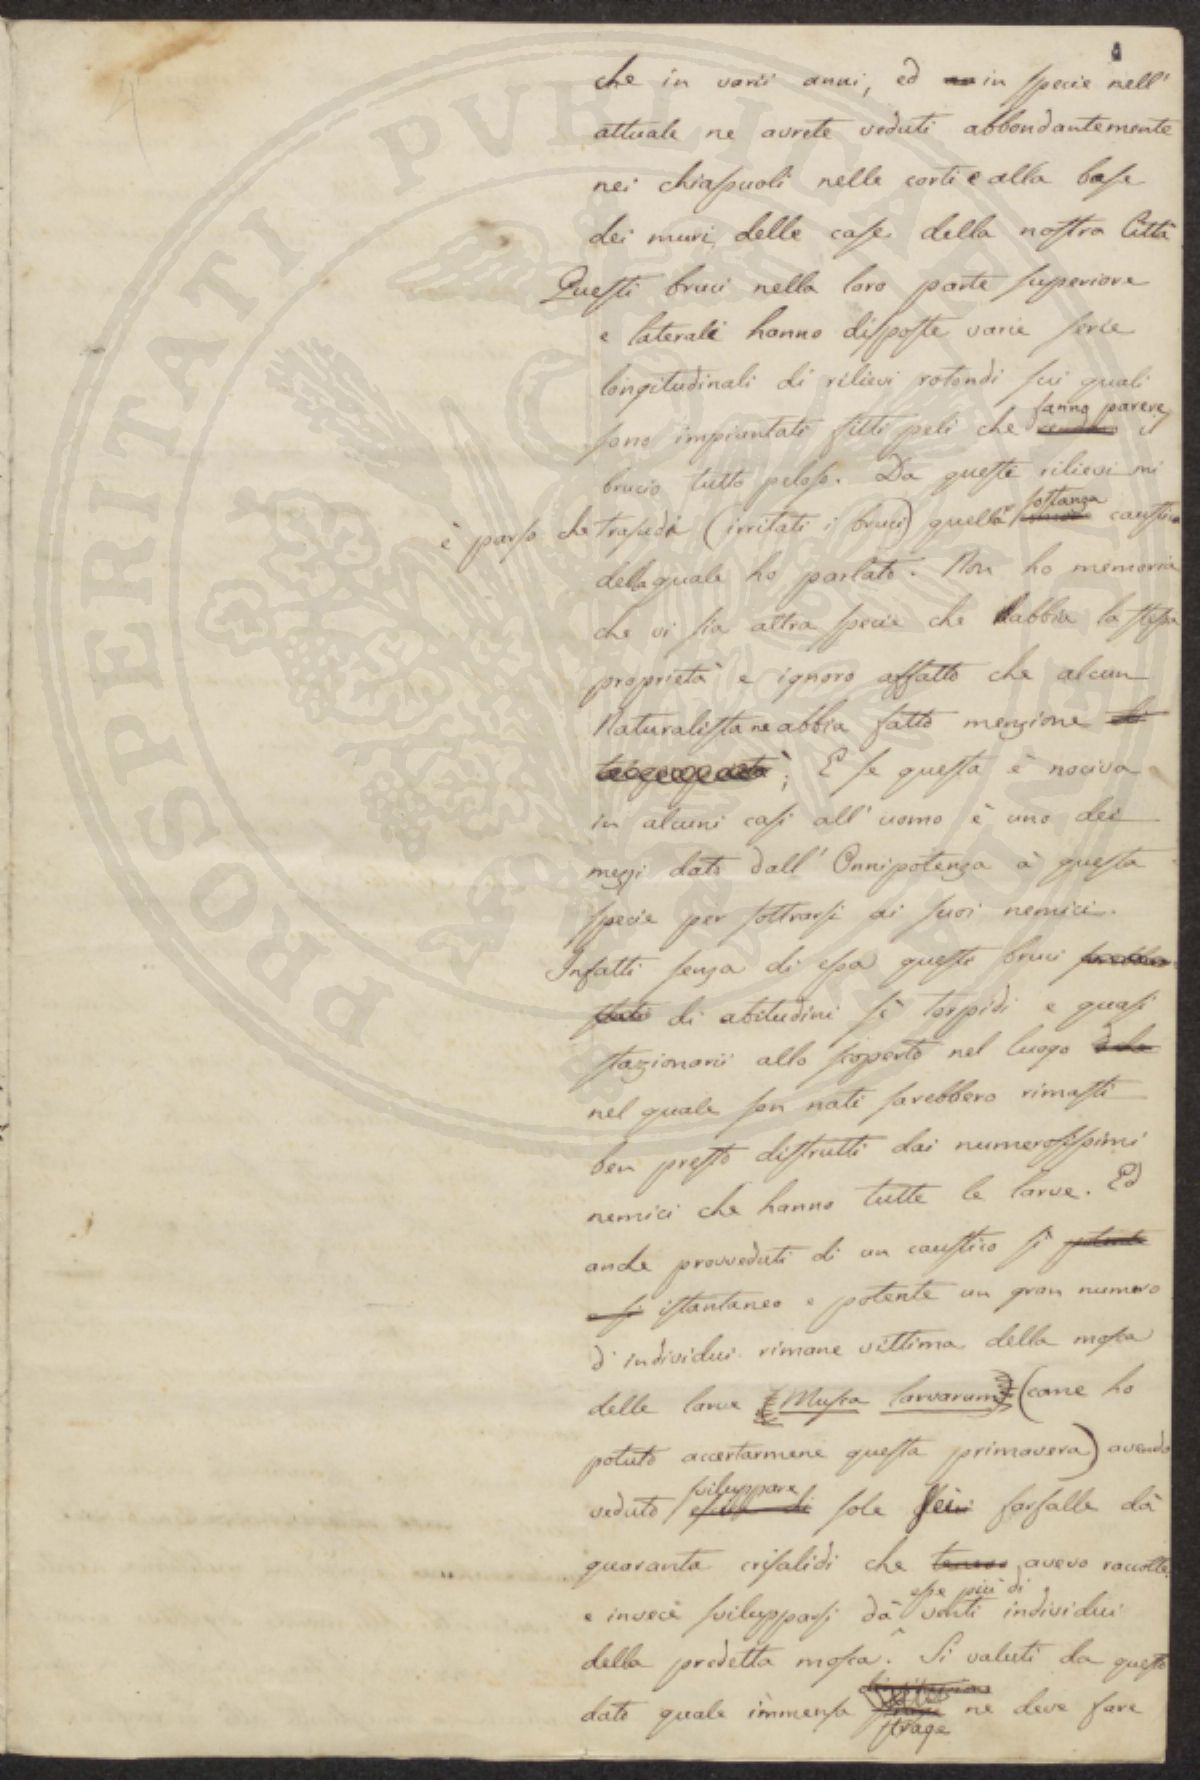 che in varii anni, ed in specie nell'
attuale ne avrete veduti abbondantemente
nei chiassuoli nelle corti e alla base
dei muri delle case della nostra Città
Questi bruci nella loro parte superiore
e laterale hanno disposte varie serie
longitudinali di rilievi rotondi sui quali
fanno parere
sono impiantati fitti peli che il
brucio tutto peloso. Da questi rilievi mi
sostanza
è parso che trasudi (irritati i bruci) quella caustica
della quale ho parlato. Non ho memoria
che vi sia altra specie che abbia la stessa
proprietà e ignoro affatto che alcun
Naturalista ne abbia fatto menzione di
; E se questa è nociva
in alcuni casi all'uomo è uno dei
mezzi dato dall'Onnipotenza à questa
specie per sottrarsi ai suoi nemici.
Infatti senza di essa questi bruci
di abitudini sì torpidi e quasi
stazionarii allo scoperto nel luogo
nel quale son nati sarebbero rimasti
ben presto distrutti dai numerosissimi
nemici che hanno tutte le larve. Ed
anche provveduti di un caustico sì potente
e sì istantaneo e potente un gran numero
d'individui rimane vittima della mosca
delle larve Musca larvarum (come ho
potuto accertarmene questa primavera) avendo
sviluppare
veduto sole sei farfalle dà
quaranta crisalidi che avevo raccolte,
esse più di
e invece svilupparsi dà venti individui
della predetta mosca. Si valuti da questo
dato quale immensa ne deve fare
strage